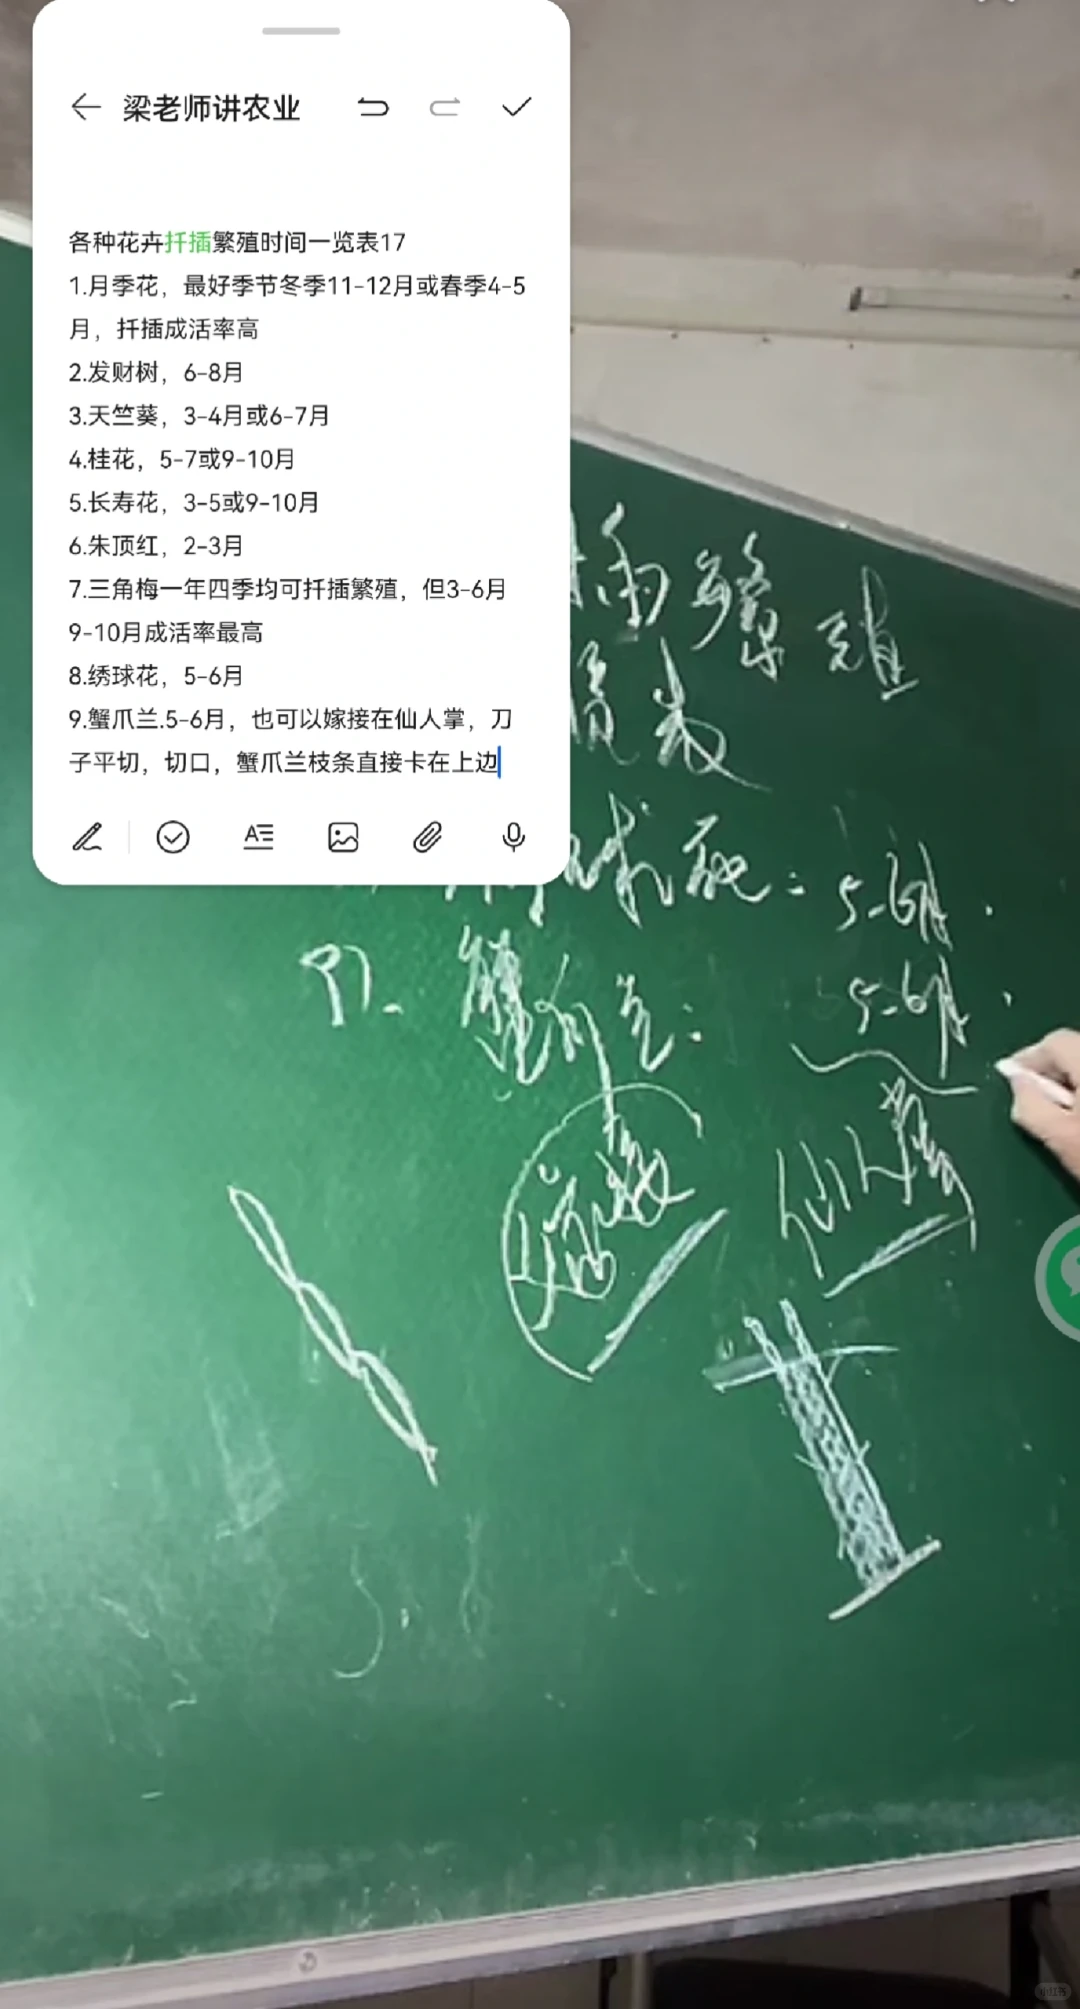 梁老师讲农业
各种花卉扦插繁殖时间一览表17
1.月季花，最好季节冬季11-12月或春季4-5
月，扦插成活率高
2.发财树，6-8月
3.天竺葵，3-4月或6-7月
4.桂花，5-7或9-10月
5.长寿花，3-5或9-10月
6.朱顶红，2-3月
7.三角梅一年四季均可扦插繁殖，但3-6月
9-10月成活率最高
8.绣球花，5-6月
9.蟹爪兰.5-6月，也可以嫁接在仙人掌，刀
子平切，切口，蟹爪兰枝条直接卡在上边
插繁殖
览表
球花：5-6月.
9.蟹爪兰：5-6月.
嫁接 仙人掌
小红书